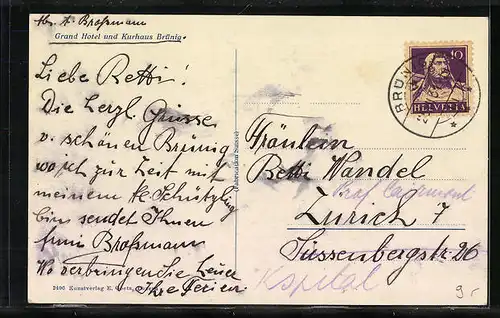 Abs. A. Broßmann
Grand Hotel und Kurhaus Brünig.
Liebe Betti!
Die herzl. Grüsse
v. schönen Brünig
wo ich zur Zeit mit
meinem kl. Schützling
bin sendet Ihnen
Broßmann
Wo verbringen Sie heuer
Ihre Ferien.
2496 Kunstverlag E. Goetz,
10
HELVETIA
BRÜN
Fräulein
Betti Wandel
Zürich 7
Süssenbergstr 26
Kspital
9.-